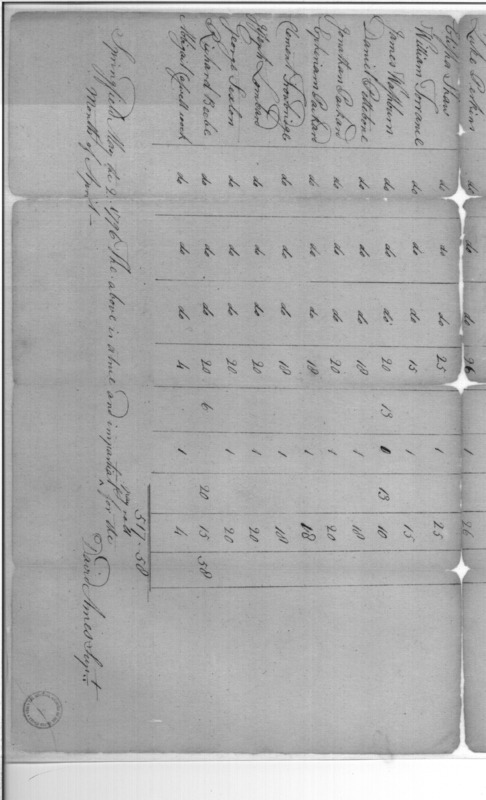 Luke Perkins do do do 26 1 26
Elisha Shaw do do do 25 1 25
William Torrance do do do 15 1 15
James Washburn do do do 20 13 0 13 10
Daniel do do do 18 1 18
Jonathan Packard do do do 20 1 20
Epheriam Packard do do do 18 1 18
Clement Trowbridge do do do 18 1 18
Joseph Lombard do do do 20 1 20
George Sexton do do do 20 1 20
Richard Beebe do do do 20 6 20 15 58
Abijah do do do 4 1 4
517.58
Springfield May the 2d 1796 The above is a true and impartial pay roll for the
Month of April —
David Ames Supt